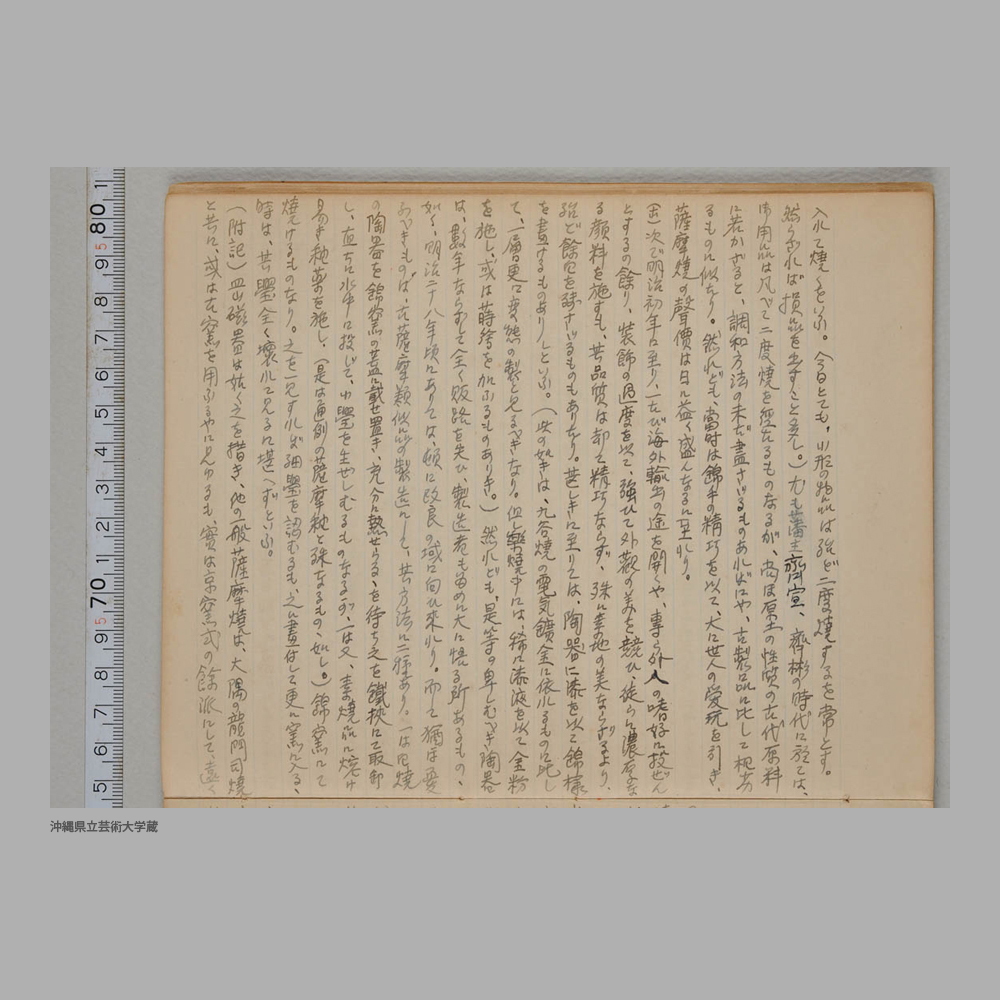 入れて焼くをいふ。今日とても、小形の物品は殆ど二度の焼するを常とす。
然らざれば損品を生ずること多し。)尤も藩主齊宣、齊彬の時代に於ては、
御用品は凡べて二度焼を經たるものなるが、尚ほ原土の性質の古代原料
に若かざると、調和方法の未だ盡さざるものあればにや、古製品に比して稍劣
るものに似たり。然れども、當時は錦手の精巧を以て、大に世人の愛玩を引き、
薩摩焼の聲價は日に益〻盛んなるに至れり。
次で明治初年に至り、一たび海外輸出の途を開くや、專ら外人の嗜好に投ぜん
とするの餘り、装飾の過度を以て、強ひて外觀の美を競ひ、徒らに濃厚な
る顔料を施すも、其品質は却て精巧ならず、殊に素地の美ならざるより、
殆ど餘白を録さざるものもありたり。甚しきに至りては、陶器に漆を以て錦様
を畫けるものありしといふ。(此の如きは、九谷焼の電気鍍金に依れるものに比し
て、一層更に変態の製と見るべきなり。但し樂焼中には、稀に漆液を以て金粉
を施し、或は蒔繪を加ふるものありき。)然れども、是等の卑しむべき陶器
は、數年ならずして全く販路を失ひ、製造者も爲めに大に悟る所あるもの、
如く、明治二十八年頃にありては、頓に改良の域に向ひ來れり。而して猶ほ憂
ふべきものは、古薩摩類似品の製造にして、其方法に二種あり。一は白焼
の陶器を錦窯の蓋に載せ置き、充分に熱せらる、を待ち之を鐵挾にて取卸
し、直ちに水中に投じて、小璺を生ぜしむるものなるが、一は又、素焼品に焼け
易き釉薬を施し、(是は通例の薩摩釉と殊なるもの、如し。)錦窯にて
焼けるものなり。之を一見すれば細璺を認むるも、之に畫付して更に窯に入る、
時は、其璺全く壞れて見るに堪へずといふ。
(附記)皿磁器は姑く之を措き、他の一般薩摩焼は、大隅の龍門司焼
と共に、或は古窯を用ふるやに見ゆるも、實は京窯式の餘派にして、遠く
80
70
沖縄県立芸術大学蔵